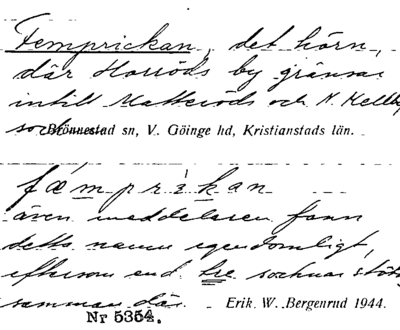 Femprickan, det hörn,
där Horröds by gränsar
intill Matteröds och N. Mellby
socknar.
Brönnestad sn, V. Göinge hd, Kristianstads län.
fæmprikan
även meddelaren fann
detta namn egendomligt,
eftersom end tre socknar stöta
samman där.
Erik W. Bergenrud 1944.
Nr 5354.